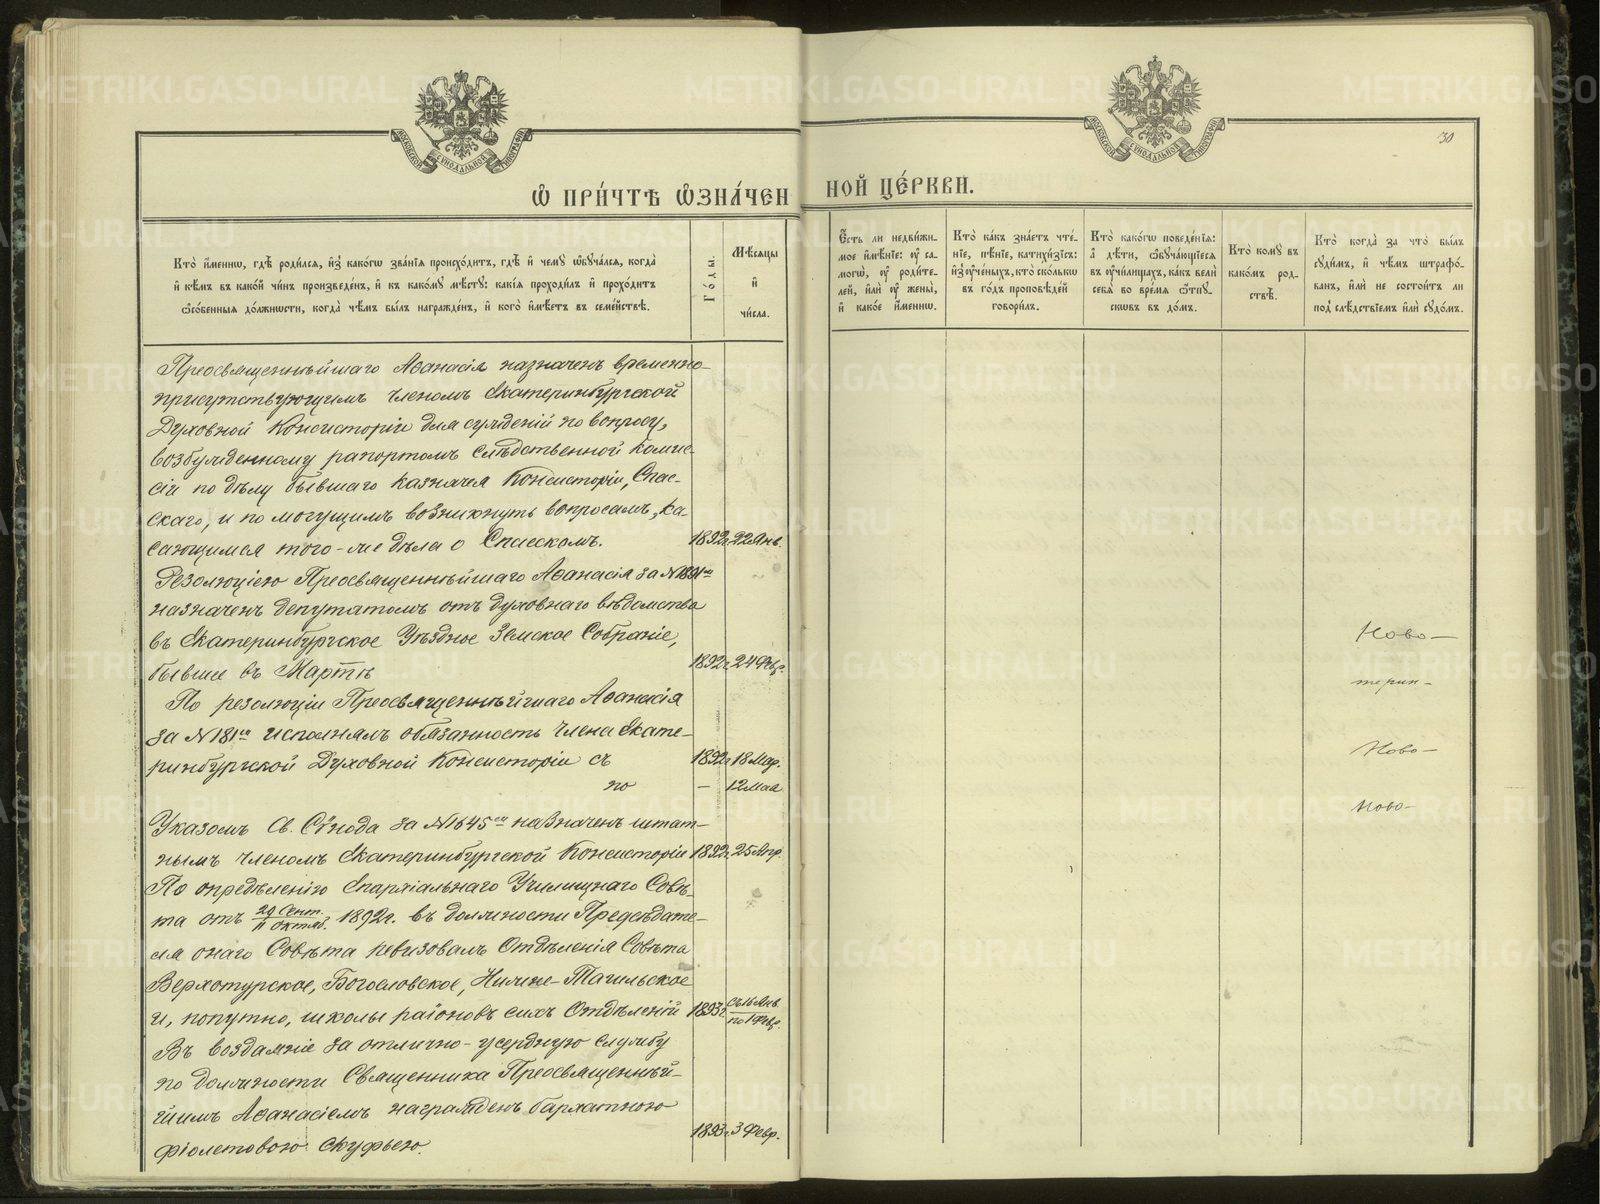 30
Ѡ ПРИ́ЧТѢ Ѡ҆ЗНА́ЧЕННОЙ ЦЕ́РКВИ.
Кто̀ и҆́менно, гдѣ̀ роди́лся, и҆з̾ како́гѡ зва́нїѧ происхо́дитъ, гдѣ̀ и҆ чемꙋ̀ ѡ҆бꙋча́лсѧ, когда̀
и҆ кѣ́мъ въ како́й чи́нъ произведе́нъ, и҆ къ како́мꙋ мѣ́стꙋ: какі̑ѧ проходи́лъ и҆ прохо́дитъ
ѡ҆со́бенныѧ до́лжности, когда̀ чѣ́мъ бы́лъ награжде́нъ, и҆ кого̀ и҆мѣ́етъ въ семе́йствѣ.
Го́ды.
Мѣ́сѧцы
и҆
чи́сла.
Є҆́сть ли недви́жи-
мое и҆мѣ́нїе: ᲂу҆ са-
могѡ̀, ᲂу҆ роди́те-
лей, и҆лѝ ᲂу҆ жены̀,
и҆ како́е и҆́менно.
Кто̀ ка́къ зна́етъ чте́-
нїе, пѣ́нїе, катихи́зїсъ:
и҆з̾ ᲂу҆че́ныхъ, кто̀ ско́лькѡ
въ го́дъ про́повѣдей
говори́лъ.
Кто̀ како́гѡ поведе́нїѧ:
а҆ дѣ́ти, ѡ҆бꙋча́ющїесѧ
въ ᲂу҆чи́лищахъ, ка́къ велѝ
себѧ̀ во вре́мѧ ѿпꙋ-
сковъ въ до́мъ.
Кто̀ комꙋ̀ въ
како́мъ род-
ствѣ̀.
Кто̀ когда̀ за что̀ бы́лъ
сꙋди́мъ, и҆ чѣ́мъ штрафо́-
ванъ, и҆лѝ не состои́тъ ли
под̾ слѣ́дствїемъ и҆лѝ сꙋдо́мъ.
Преосвященнѣйшаго Аѳанасія назначенъ временно-
присутствующимъ членомъ Екатеринбургской
Духовной Консисторіи для сужденій по вопросу,
возбужденному рапортомъ слѣдственной комис-
сіи по дѣлу бывшаго казначея Консисторіи, Спас-
скаго, и по могущимъ возникнуть вопросамъ, ка-
сающимся того-же дѣла о Спасскомъ. 1892г. 22 Янв.
Резолюціею Преосвященнѣйшаго Аѳанасія за №1891мъ
назначенъ депутатомъ отъ духовнаго вѣдомства
въ Екатеринбургское Уѣздное Земское Собраніе,
бывшее въ Мартѣ 1892г. 24 Февр.
По резолюціи Преосвященнѣйшаго Аѳанасія
за №181мъ исполнялъ обязанность члена Екате-
ринбургской Духовной Консисторіи съ 1892г. 18 Мар.
по — 12 Мая
Указомъ Св. Сѵнода за №1645мъ назначенъ штат-
нымъ членомъ Екатеринбургской Консисторіи 1892г. 25 Апр.
По опредѣленію Епархіальнаго Училищнаго Совѣ-
та отъ 29 Сент./11 Октяб. 1892г. въ должности Предсѣдате-
ля онаго Совѣта ревизовалъ Отдѣленія Совѣта
Верхотурское, Богословское, Нижне-Тагильское
и, попутно, школы раіоновъ сихъ Отдѣленій 1893г. съ 16 Янв. по 1 Февр.
Въ воздаяніе за отлично-усердную службу
по должности Священника Преосвященнѣй-
шимъ Аѳанасіемъ награжденъ бархатною
фіолетовою скуфьею. 1893г. 3 Февр.
Ново-
терин-
Ново-
Ново-
МОСКОВСКОЙ СѴНОДАЛЬНОЙ ТИПОГРАФІИ
МОСКОВСКОЙ СѴНОДАЛЬНОЙ ТИПОГРАФІИ
METRIKI.GASO-URAL.RU